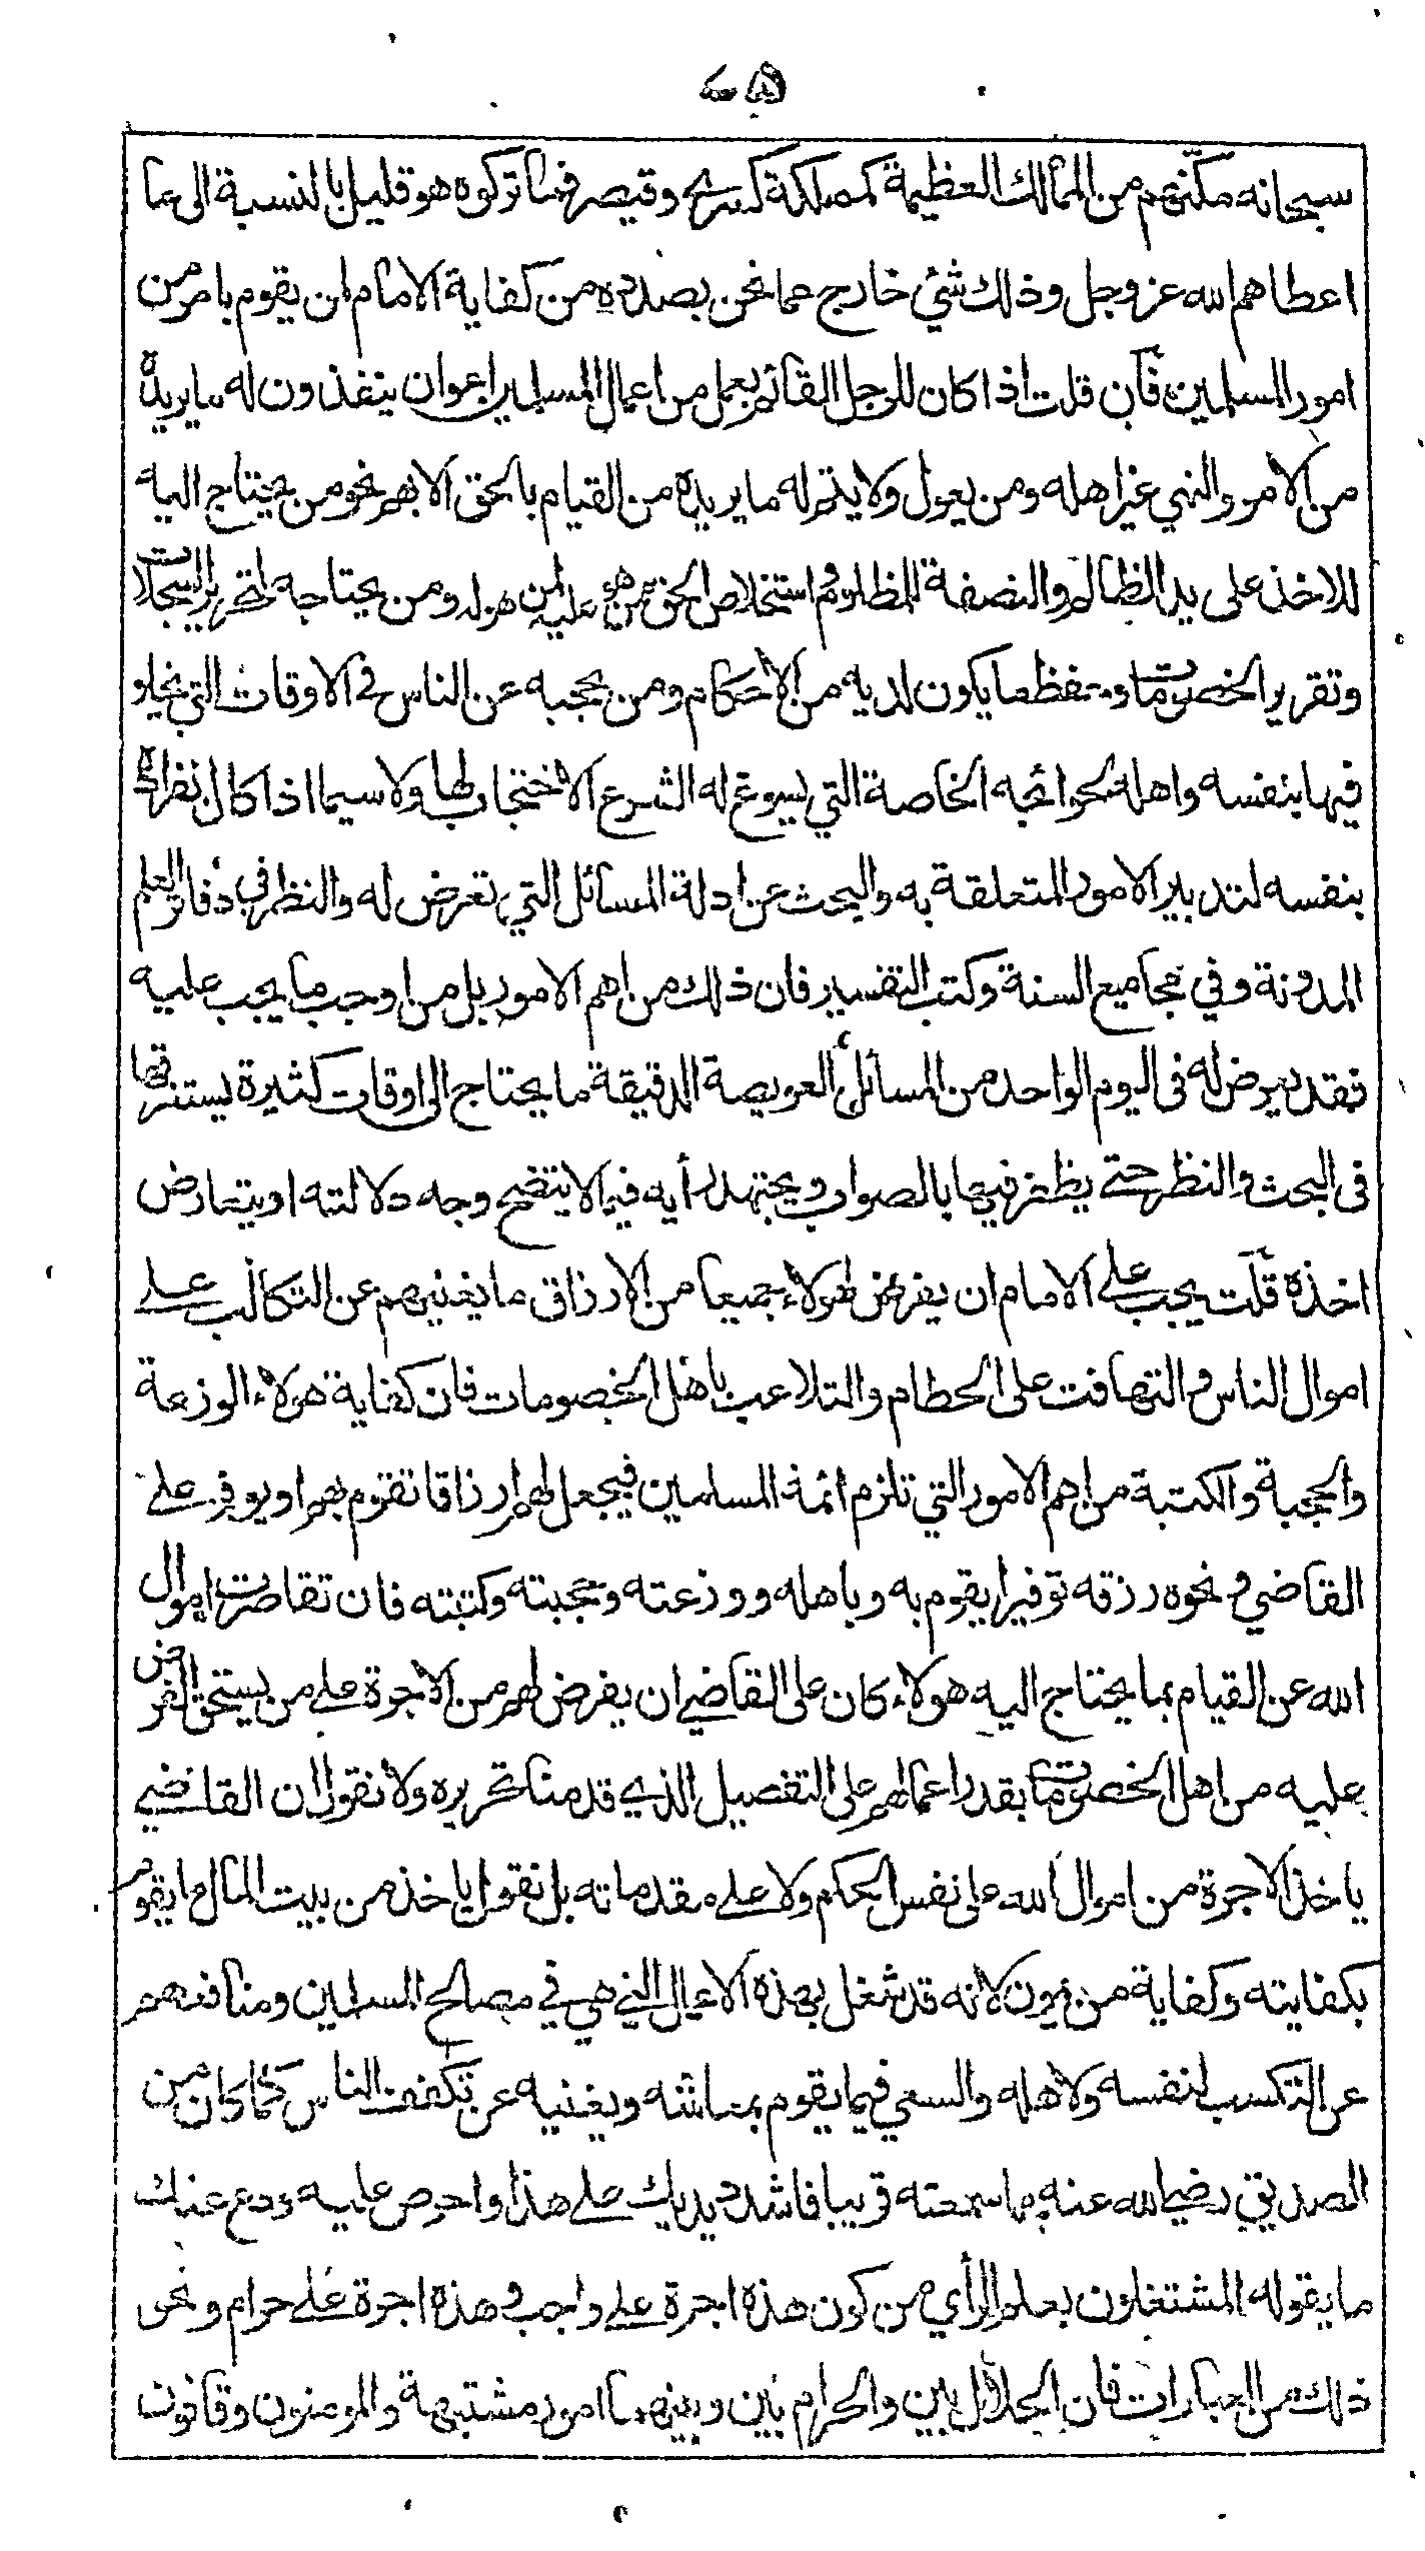 سبحانه مكنهم من الممالك العظيمة كمملكة كسرى وقيصر فما تركوه هو قليل بالنسبة الى ما
اعطاهم الله عز وجل وذلك شئ خارج عما نحن بصدده من كفاية الامام لمن يقوم بامر من
امور المسلمين فان قلت اذا كان للرجل القائم بعمل من اعمال المسلمين اعوان ينفذون له ما يريده
من الامر والنهي غير اهله ومن يعول ولا يتم له ما يريده من القيام بالحق الا بهم نحو من يحتاج اليه
للاخذ على يد الظالم والنصفة للمظلوم واستخلاص الحق ممن هو عليه لمن هو له ومن يحتاجه لتحرير السجلات
وتقرير الخصومات وحفظ ما يكون لديه من الاحكام ومن يحجبه عن الناس في الاوقات التي يخلو
فيها بنفسه واهله لحوائجه الخاصة التي يسوغ له الشرع الاحتجاب لها ولا سيما اذا كان انفراده
بنفسه لتدبير الامور المتعلقة به والبحث عن ادلة المسائل التي تعرض له والنظر في دفاتر العلم
المدونة وفي مجاميع السنة وكتب التفسير فان ذلك من اهم الامور بل من اوجب ما يجب عليه
فقد يعرض له فى اليوم الواحد من المسائل العويصة الدقيقة ما يحتاج الى اوقات كثيرة يستغرقها
فى البحث والنظر حتى يظفر فيها بالصواب ويجتهد رأيه فيما لا يتضح وجه دلالته او يتعارض
اخذه قلت يجب على الامام ان يفرض لهولاء جميعا من الارزاق ما يغنيهم عن التكالب على
اموال الناس والتهافت على الحطام والتلاعب باهل الخصومات فان كفاية هولاء الوزعة
والحجبة والكتبة من اهم الامور التي تلزم ائمة المسلمين فيجعل لهم ارزاقا تقوم بهم او يوفر على
القاضي ونحوه رزقه توفيرا يقوم به وباهله ووزعته وحجبته وكتبته فان تقاصرت اموال
الله عن القيام بما يحتاج اليه هولاء كان على القاضي ان يفرض لهم من الاجرة على من يستحق الفرض
عليه من اهل الخصومات بقدر اعمالهم على التفصيل الذي قدمنا تحريره ولا نقول ان القاضي
ياخذ الاجرة من اموال الله على نفس الحكم ولا على مقدماته بل نقول ياخذ من بيت المال ما يقوم
بكفايته وكفاية من يمون لانه قد شغل بهذه الاعمال التي هي في مصالح المسلمين ومنافعهم
عن التكسب لنفسه ولاهله والسعي فيما يقوم بمعاشه ويغنيه عن تكفف الناس كما كان من
الصديق رضي الله عنه مما سمعته قريبا فاشدد يديك على هذا واحرص عليه ودع عنك
ما يقوله المشتغلون بعلم الرأي من كون هذه اجرة على واجب وهذه اجرة على حرام ونحو
ذلك من العبارات فان الحلال بين والحرام بين وبينهما امور مشتبهة والمومنون وقافون